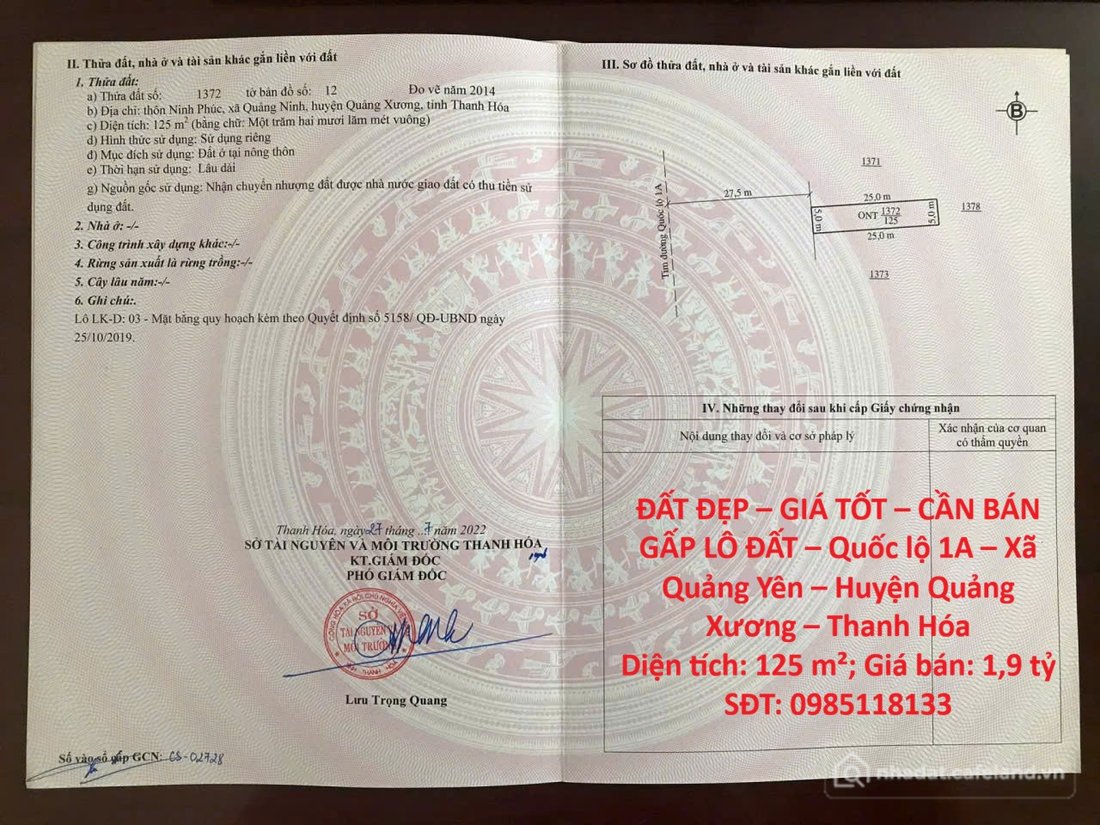 II. Thửa đất, nhà ở và tài sản khác gắn liền với đất
1. Thửa đất:
a) Thửa đất số: 1372 tờ bản đồ số: 12 Đo vẽ năm 2014
b) Địa chỉ: thôn Ninh Phúc, xã Quảng Ninh, huyện Quảng Xương, tỉnh Thanh Hóa
c) Diện tích: 125 m² (bằng chữ: Một trăm hai mươi lăm mét vuông)
d) Hình thức sử dụng: Sử dụng riêng
đ) Mục đích sử dụng: Đất ở tại nông thôn
e) Thời hạn sử dụng: Lâu dài
g) Nguồn gốc sử dụng: Nhận chuyển nhượng đất được nhà nước giao đất có thu tiền sử
dụng đất.
2. Nhà ở: -/-
3. Công trình xây dựng khác:-/-
4. Rừng sản xuất là rừng trồng:-/-
5. Cây lâu năm:-/-
6. Ghi chú:.
Lô LK-D: 03 - Mặt bằng quy hoạch kèm theo Quyết định số 5158/ QĐ-UBND ngày
25/10/2019.
Thanh Hóa, ngày 27 tháng .7 năm 2022
SỞ TÀI NGUYÊN VÀ MÔI TRƯỜNG THANH HÓA
KT.GIÁM ĐỐC
PHÓ GIÁM ĐỐC
SỞ
TÀI NGUYÊN
MÔI TRƯỜNG
Lưu Trọng Quang
Số vào sổ cấp GCN: CS-02728
III. Sơ đồ thửa đất, nhà ở và tài sản khác gắn liền với đất
B
1371
27,5 m
25,0 m
Tim đường Quốc lộ 1A
5,0 m
ONT 1372
125
5,0 m
1378
25,0 m
1373
IV. Những thay đổi sau khi cấp Giấy chứng nhận
Nội dung thay đổi và cơ sở pháp lý
Xác nhận của cơ quan
có thẩm quyền
ĐẤT ĐẸP – GIÁ TỐT – CẦN BÁN
GẤP LÔ ĐẤT – Quốc lộ 1A – Xã
Quảng Yên – Huyện Quảng
Xương – Thanh Hóa
Diện tích: 125 m²; Giá bán: 1,9 tỷ
SĐT: 0985118133
nhadatcafeland.vn